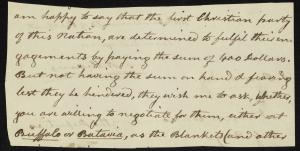 am happy to say that the first Christian party
of this Nation, are determined to fulfil their en-
gagements by paying the sum of 400 Dollars.
But not having the sum on hand & fearing
lest they be hindered, they wish me to ask, whether
you are willing to negotiate for them, either at
Buffalo or Batavia, as the Blankets (and other